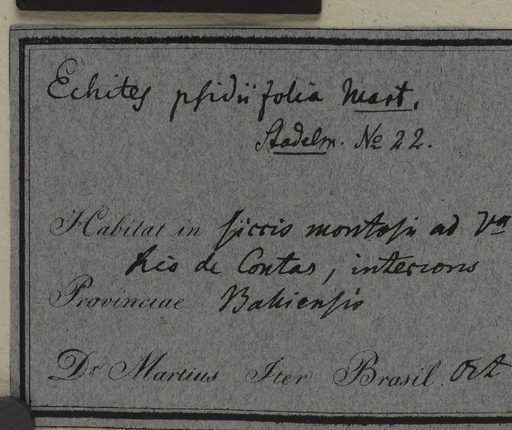 Echites psidiifolia Mart.
Stadelm. No 22.
Habitat in siccis montosis ad Va
Rio de Contas, interioris
Provinciae Bahiensis
Dr Martius Iter Brasil. Oct